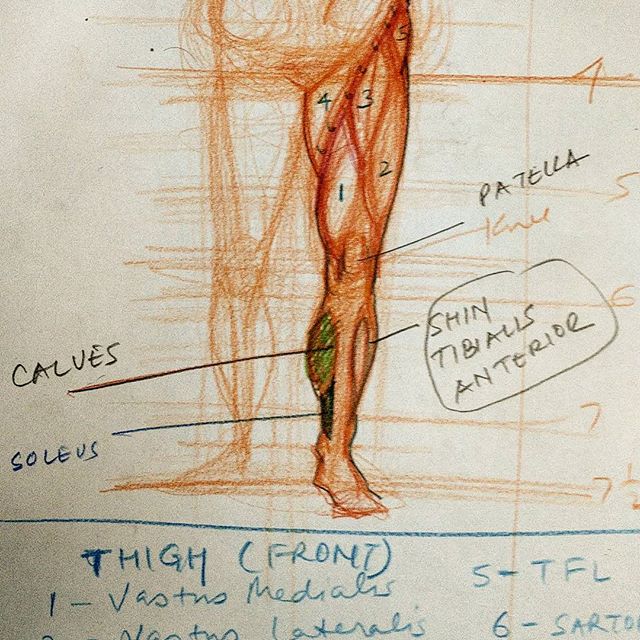 5
4
4
3
2
PATELLA
5
1
Knee
6
SHIN
TIBIALIS
ANTERIOR
CALVES
7
SOLEUS
7 1/2
THIGH (FRONT)
5 - TFL
1 - Vastus Medialis
6 - SARTO
2 - Vastus Lateralis